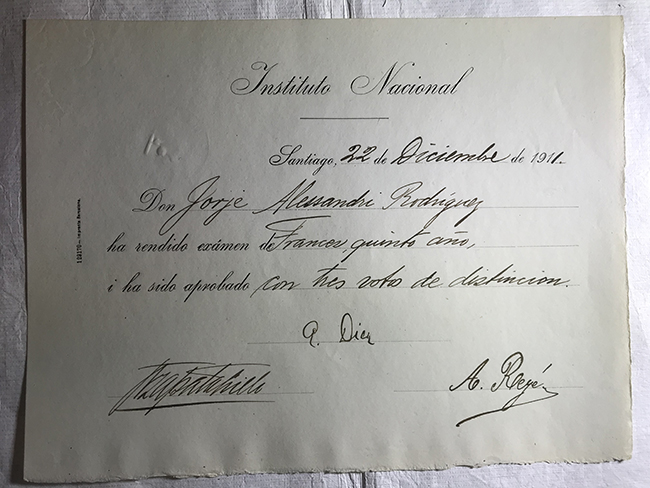 Instituto Nacional
Santiago, 22 de Diciembre de 1911.
Don Jorje Alessandri Rodríguez
ha rendido exámen de Frances quinto año,
i ha sido aprobado con tres votos de distincion.
A. Rezé